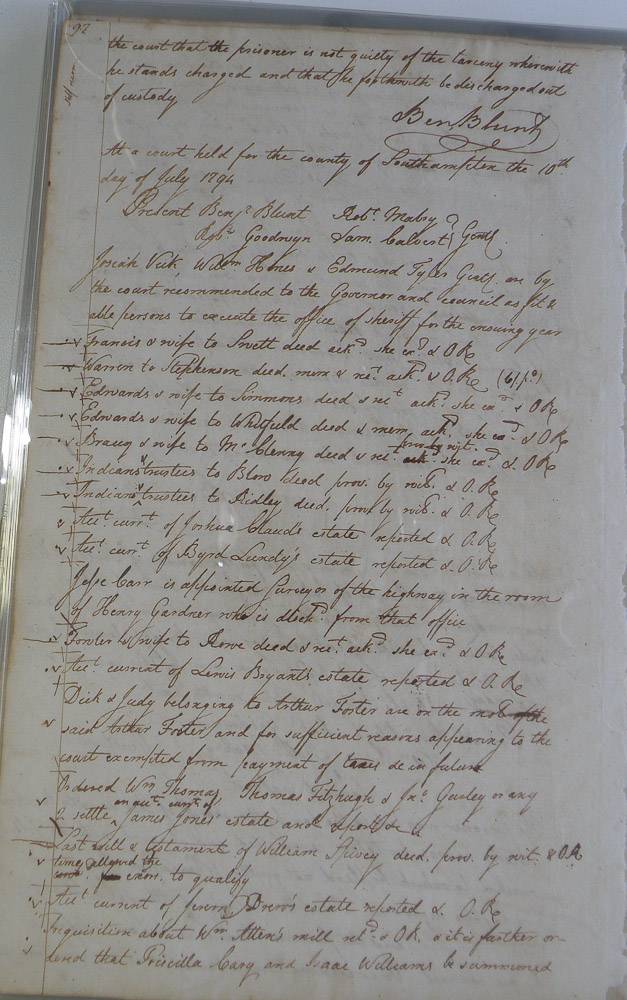 92
the court that the prisoner is not guilty of the larceny wherewith
he stands charged and that he forthwith be discharged out
of custody
Ben Blunt
At a court held for the county of Southampton the 10th
day of July 1794
Present Benja Blunt Robt Mabry
Robt Goodwyn Sam. Calvert Gentl.
Josiah Vick Willm Hines & Edmund Tyler Gentl. are by
the court recommended to the Governor and council as fit &
able persons to execute the office of sheriff for the ensuing year
Francis & wife to Swett deed ackd she exd & O Re
Warren to Stephenson deed. mem & ret ackd & O. Re
Edwards & wife to Simmons deed & ret ackd she exd & O Re
Edwards & wife to Whitfield deed & mem ackd she exd & O Re
Braug & wife to Mc Clenny deed & ret prov by wit. she exd & O. Re
Indians trustees to Blow deed prov. by witd. & O. Re
Indians trustees to Ridley deed. prov. by witd. & O. Re
Acct. currt. of Joshua Claud's estate reported & O. Re
Acct. currt. of Byrd Lundy's estate reported & O. Re
Jesse Carr is appointed Surveyor of the highway in the room
of Henry Gardner who is dischd from that office
Fowler & wife to Rowe deed & ret. ackd. she exd & O Re
Acct current of Lewis Bryant's estate reported & O. Re
Dick & Judy belonging to Arthur Foster are on the mo of the
said Arthur Foster and for sufficient reasons appearing to the
court exempted from payment of taxes &c in future
Ordered Wm Thomas Thomas Fitzhugh & Jno Gurley or any
2 settle an acct. currt of James Jones' estate and report &c
Last will & testament of William Spivey deed. prov. by wit. & O Re
time allowed the
exors. to qualify
Acct current of Jeremh Drew's estate reported & O. Re
Inquisition about Wm Allen's mill retd & OR. & it is further or-
dered that Priscilla Cary and Isaac Williams be summoned